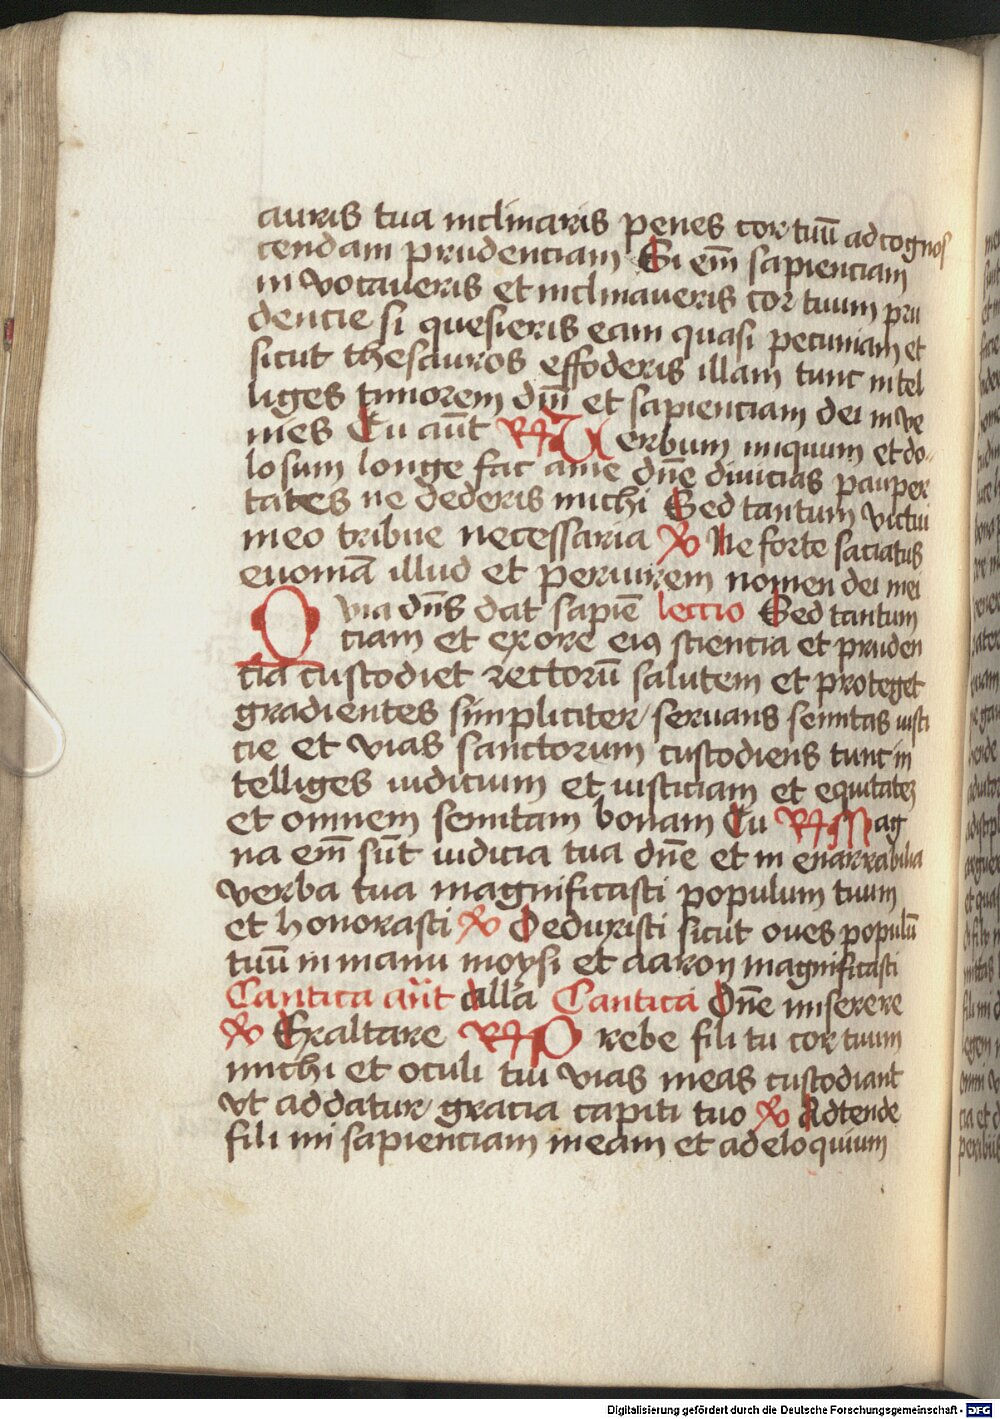 auris tua inclinaris penes cor tuū ad cognos
cendam prudenciam Si em̄ sapienciam
in vocaueris et inclinaueris cor tuum pru
dencie si quesieris eam quasi pecuniam et
sicut thesauros effoderis illam tunc intel
liges timorem dnī et sapienciam dei inve
nies Tu aūt R Verbum iniquum et do-
losum longe fac a me dn̄e diuicias pauper
tates ne dederis michi Sed tantum victui
meo tribue necessaria ℣ Ne forte saciatus
euomā illud et periurem nomen dei mei
Quia dn̄s dat sapiē lectio Sed tantum
ciam et ex ore eiꝰ sciencia et pruden
cia custodiet rectorū salutem et proteget
gradientes simpliciter seruans semitas iusti
cie et vias sanctorum custodiens tunc in
telliges iudicium et iusticiam et equitateꝫ
et omnem semitam bonam Tu R Mag
na em̄ sūt iudicia tua dn̄e et in enarrabilia
verba tua magnificasti populum tuum
et honorasti ℣ Deduxisti sicut oues populū
tuū in manu moysi et aaron magnificasti
Cantica aūt alla Cantica Dn̄e miserere
℣ Exaltare R Prebe fili tu cor tuum
michi et oculi tui vias meas custodiant
vt addatur gracia capiti tuo ℣ Adtende
fili mi sapienciam meam et ad eloquium
Digitalisierung gefördert durch die Deutsche Forschungsgemeinschaft - DFG